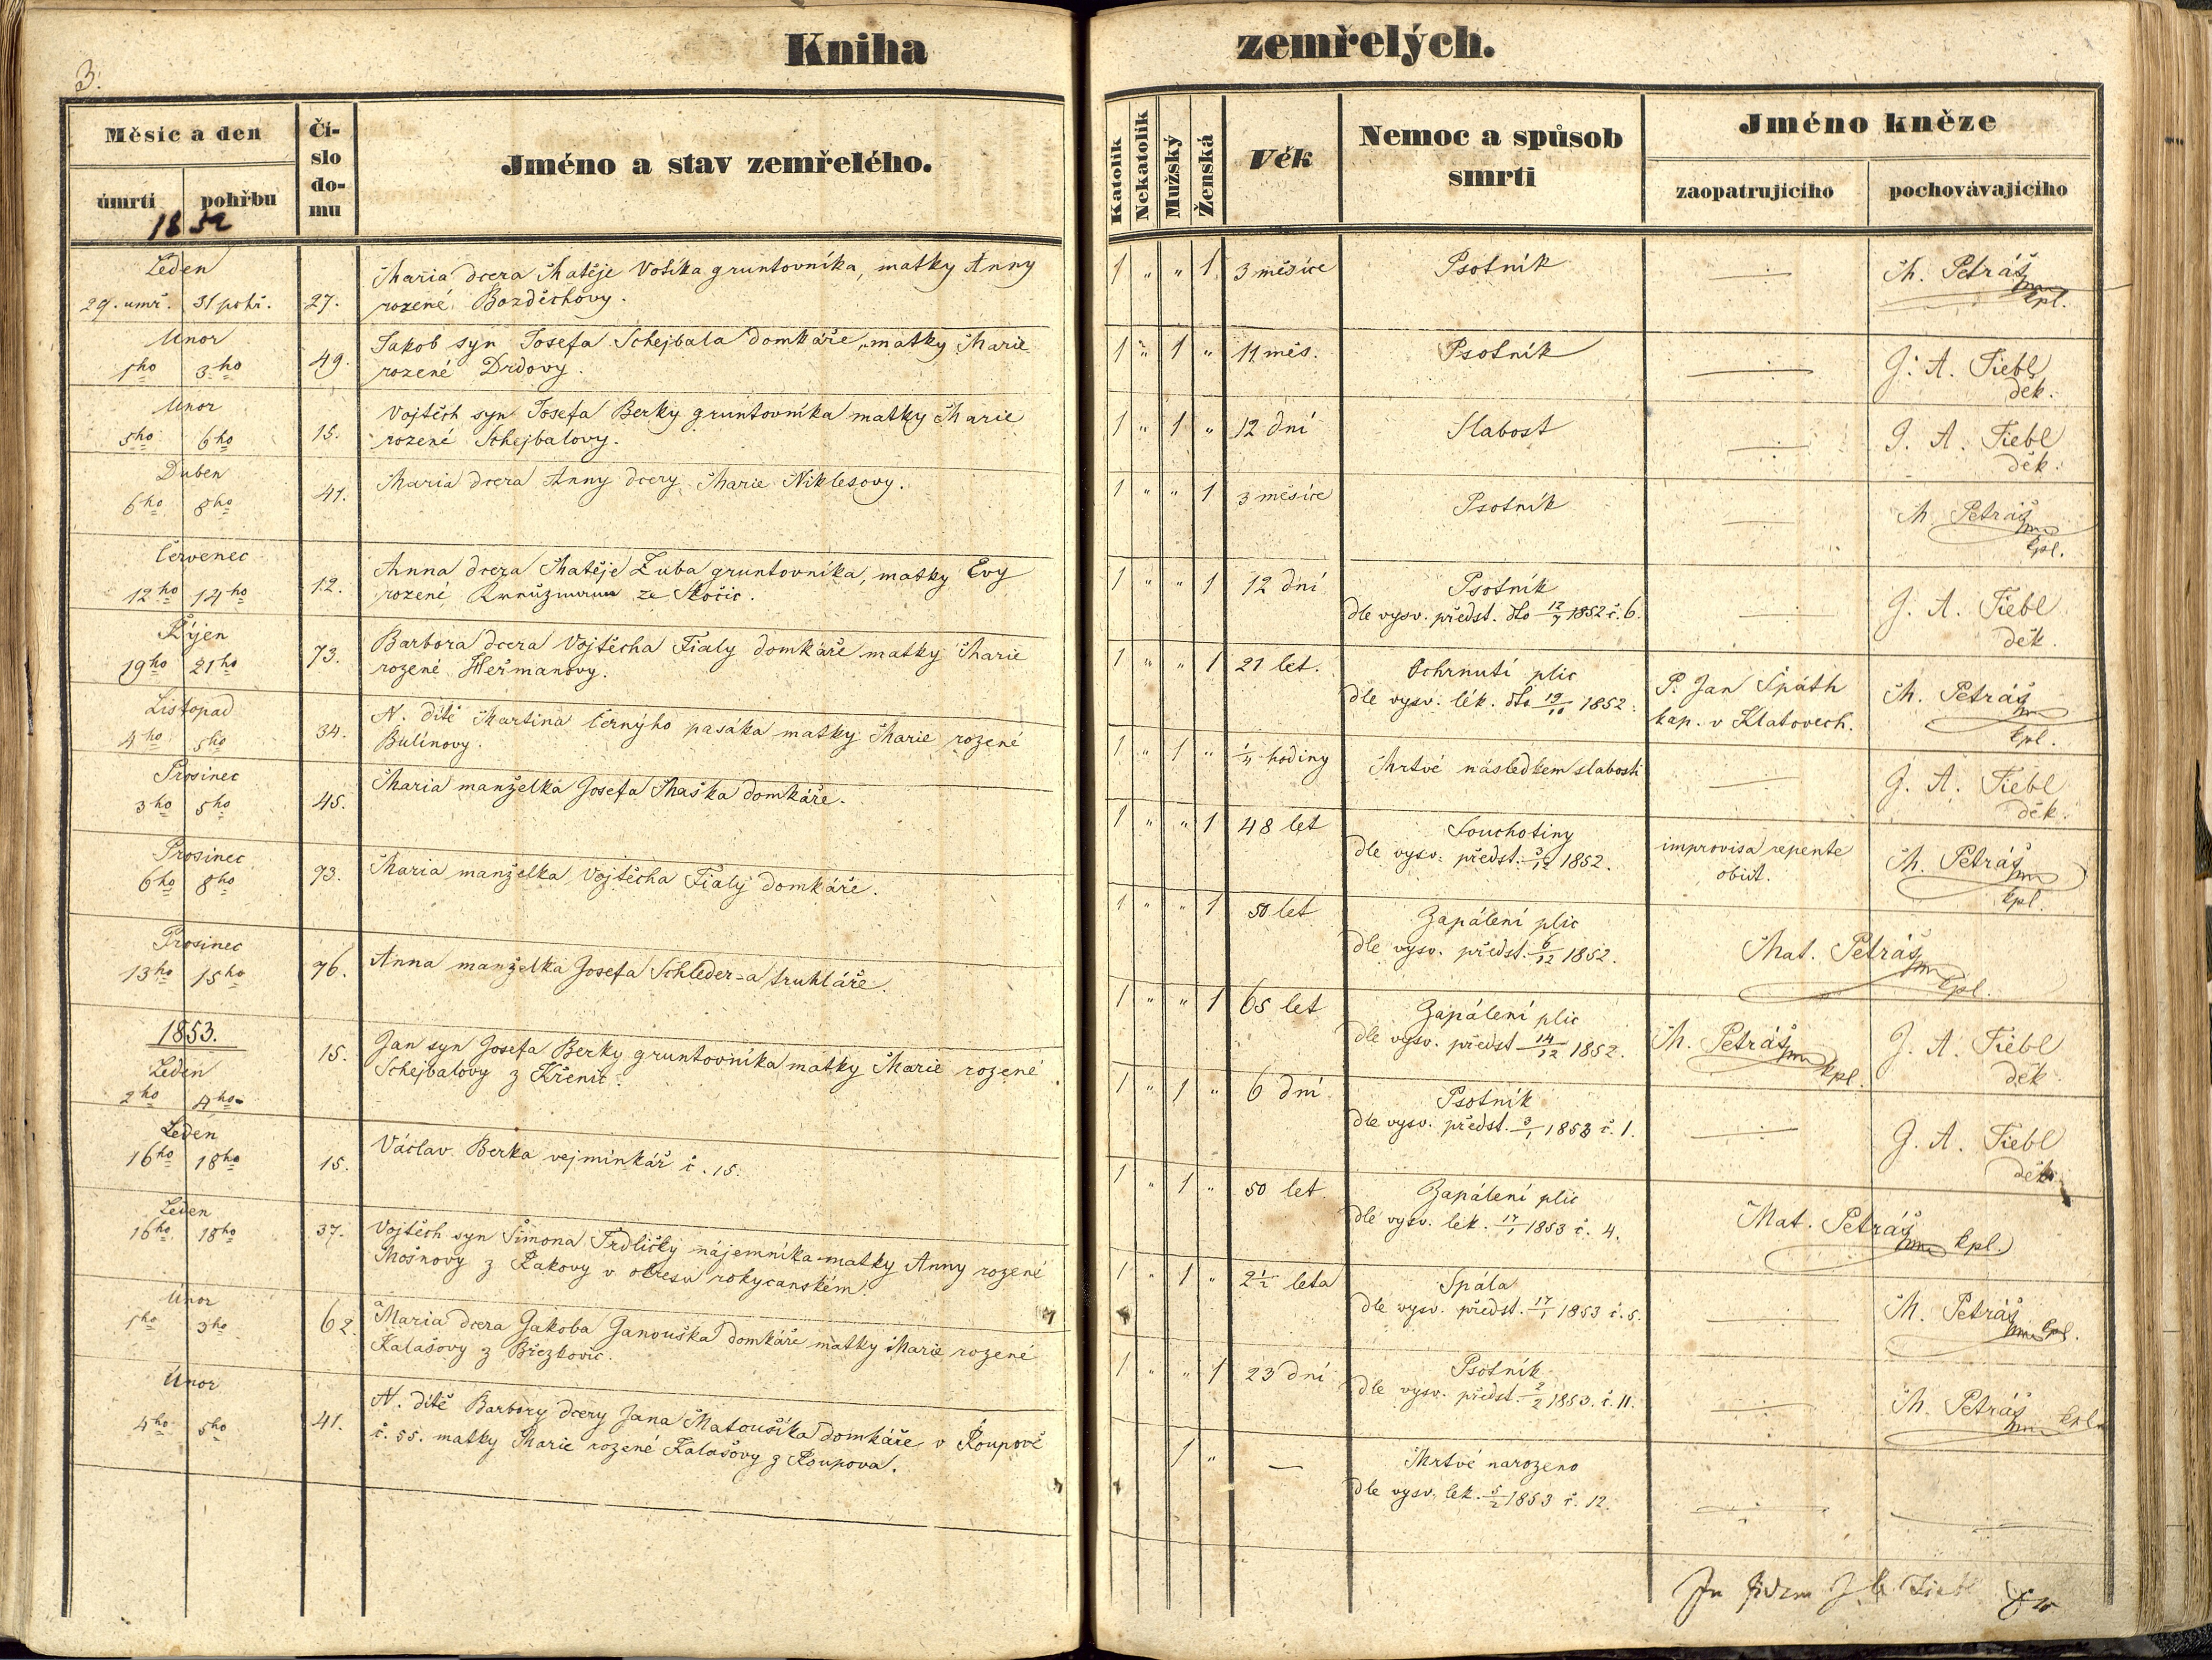 Kniha zemřelých.
3.
Měsíc a den
úmrtí pohřbu
1852
Číslo domu
Jméno a stav zemřelého.
Katolík Nekatolík Mužský Ženská
Věk
Nemoc a spůsob smrti
Jméno kněze
zaopatrujícího pochovávajícího
Leden
29. umř. 31 pohř. 27. Maria dcera Matěje Votíka gruntovníka, matky Anny
rozené Bozděchovy.
1 " " 1 3 měsíce Psotník M. Petráš
kpl.
Unor
1ho 3ho 49. Jakob syn Josefa Schejbala domkáře, matky Marie
rozené Drdovy.
1 " 1 " 11 měs. Psotník J. A. Fiebl
děk.
Unor
5ho 6ho 15. Vojtěch syn Josefa Berky gruntovníka matky Marie
rozené Schejbalovy.
1 " 1 " 12 dní Slabost J. A. Fiebl
děk.
Duben
6ho 8ho 41. Maria dcera Anny dcery Marie Niklesovy.
1 " " 1 3 měsíce Psotník M. Petráš
kpl.
Červenec
12ho 14ho 12. Anna dcera Matěje Zuba gruntovníka, matky Evy
rozené ze Skočic.
1 " " 1 12 dní Psotník
dle vysv. předst. dto 12/7 1852 č. 6.
J. A. Fiebl
děk.
Říjen
19ho 21ho 73. Barbora dcera Vojtěcha Fialy domkáře matky Marie
rozené Heřmanovy.
1 " " 1 21 let. Ochrnutí plic
dle vysv. lék. dto 19/10 1852.
P. Jan Späth
kap. v Klatovech.
M. Petráš
kpl.
Listopad
4ho 5ho 34. N. dítě Martina černýho pasáka matky Marie rozené
Bulínovy.
1 " 1 " 1/4 hodiny Mrtvé následkem slabosti J. A. Fiebl
děk.
Prosinec
3ho 5ho 45. Maria manželka Josefa Maška domkáře.
1 " " 1 48 let Souchotiny
dle vysv. předst. 3/12 1852.
improvisa repente
obiit.
M. Petráš
kpl.
Prosinec
6ho 8ho 73. Maria manželka Vojtěcha Fialy domkáře.
1 " " 1 50 let Zapálení plic
dle vysv. předst. 6/12 1852.
Mat. Petráš
kpl.
Prosinec
13ho 15ho 76. Anna manželka Josefa Schleder-a truhláře.
1 " " 1 65 let Zapálení plic
dle vysv. předst 14/12 1852.
M. Petráš kpl.
J. A. Fiebl
děk
1853.
Leden
2ho 4ho 15. Jan syn Josefa Berky gruntovníka matky Marie rozené
Schejbalovy z Křenic.
1 " 1 " 6 dní Psotník
dle vysv. předst. 3/1 1853 č. 1.
J. A. Fiebl
děk
Leden
16ho 18ho 15. Václav Berka vejminkář č. 15.
1 " 1 " 50 let Zapálení plic
dle vysv. lek. 17/1 1853 č. 4.
Mat. Petráš kpl.
Leden
16ho 18ho 37. Vojtěch syn Šimona Trdličky nájemníka matky Anny rozené
Mošnovy z Rakovy v okresu rokycanském.
1 " 1 " 2 1/2 leta Spála
dle vysv. předst. 17/1 1853 č. 5.
M. Petráš kpl.
Unor
1ho 3ho 62. Maria dcera Jakoba Janouška domkáře matky Marie rozené
Kalašovy z Březkovic.
1 " " 1 23 dní Psotník
dle vysv. předst. 2/2 1853. č. 11.
M. Petráš kpl.
Unor
4ho 5ho 41. N. dítě Barbory dcery Jana Matoušíka domkáře v Roupově
č. 55. matky Marie rozené Kalašovy z Roupova.
1 " — Mrtvé narozeno
dle vysv. lek. 5/2 1853 č. 12.
In fidem J. A. Fiebl